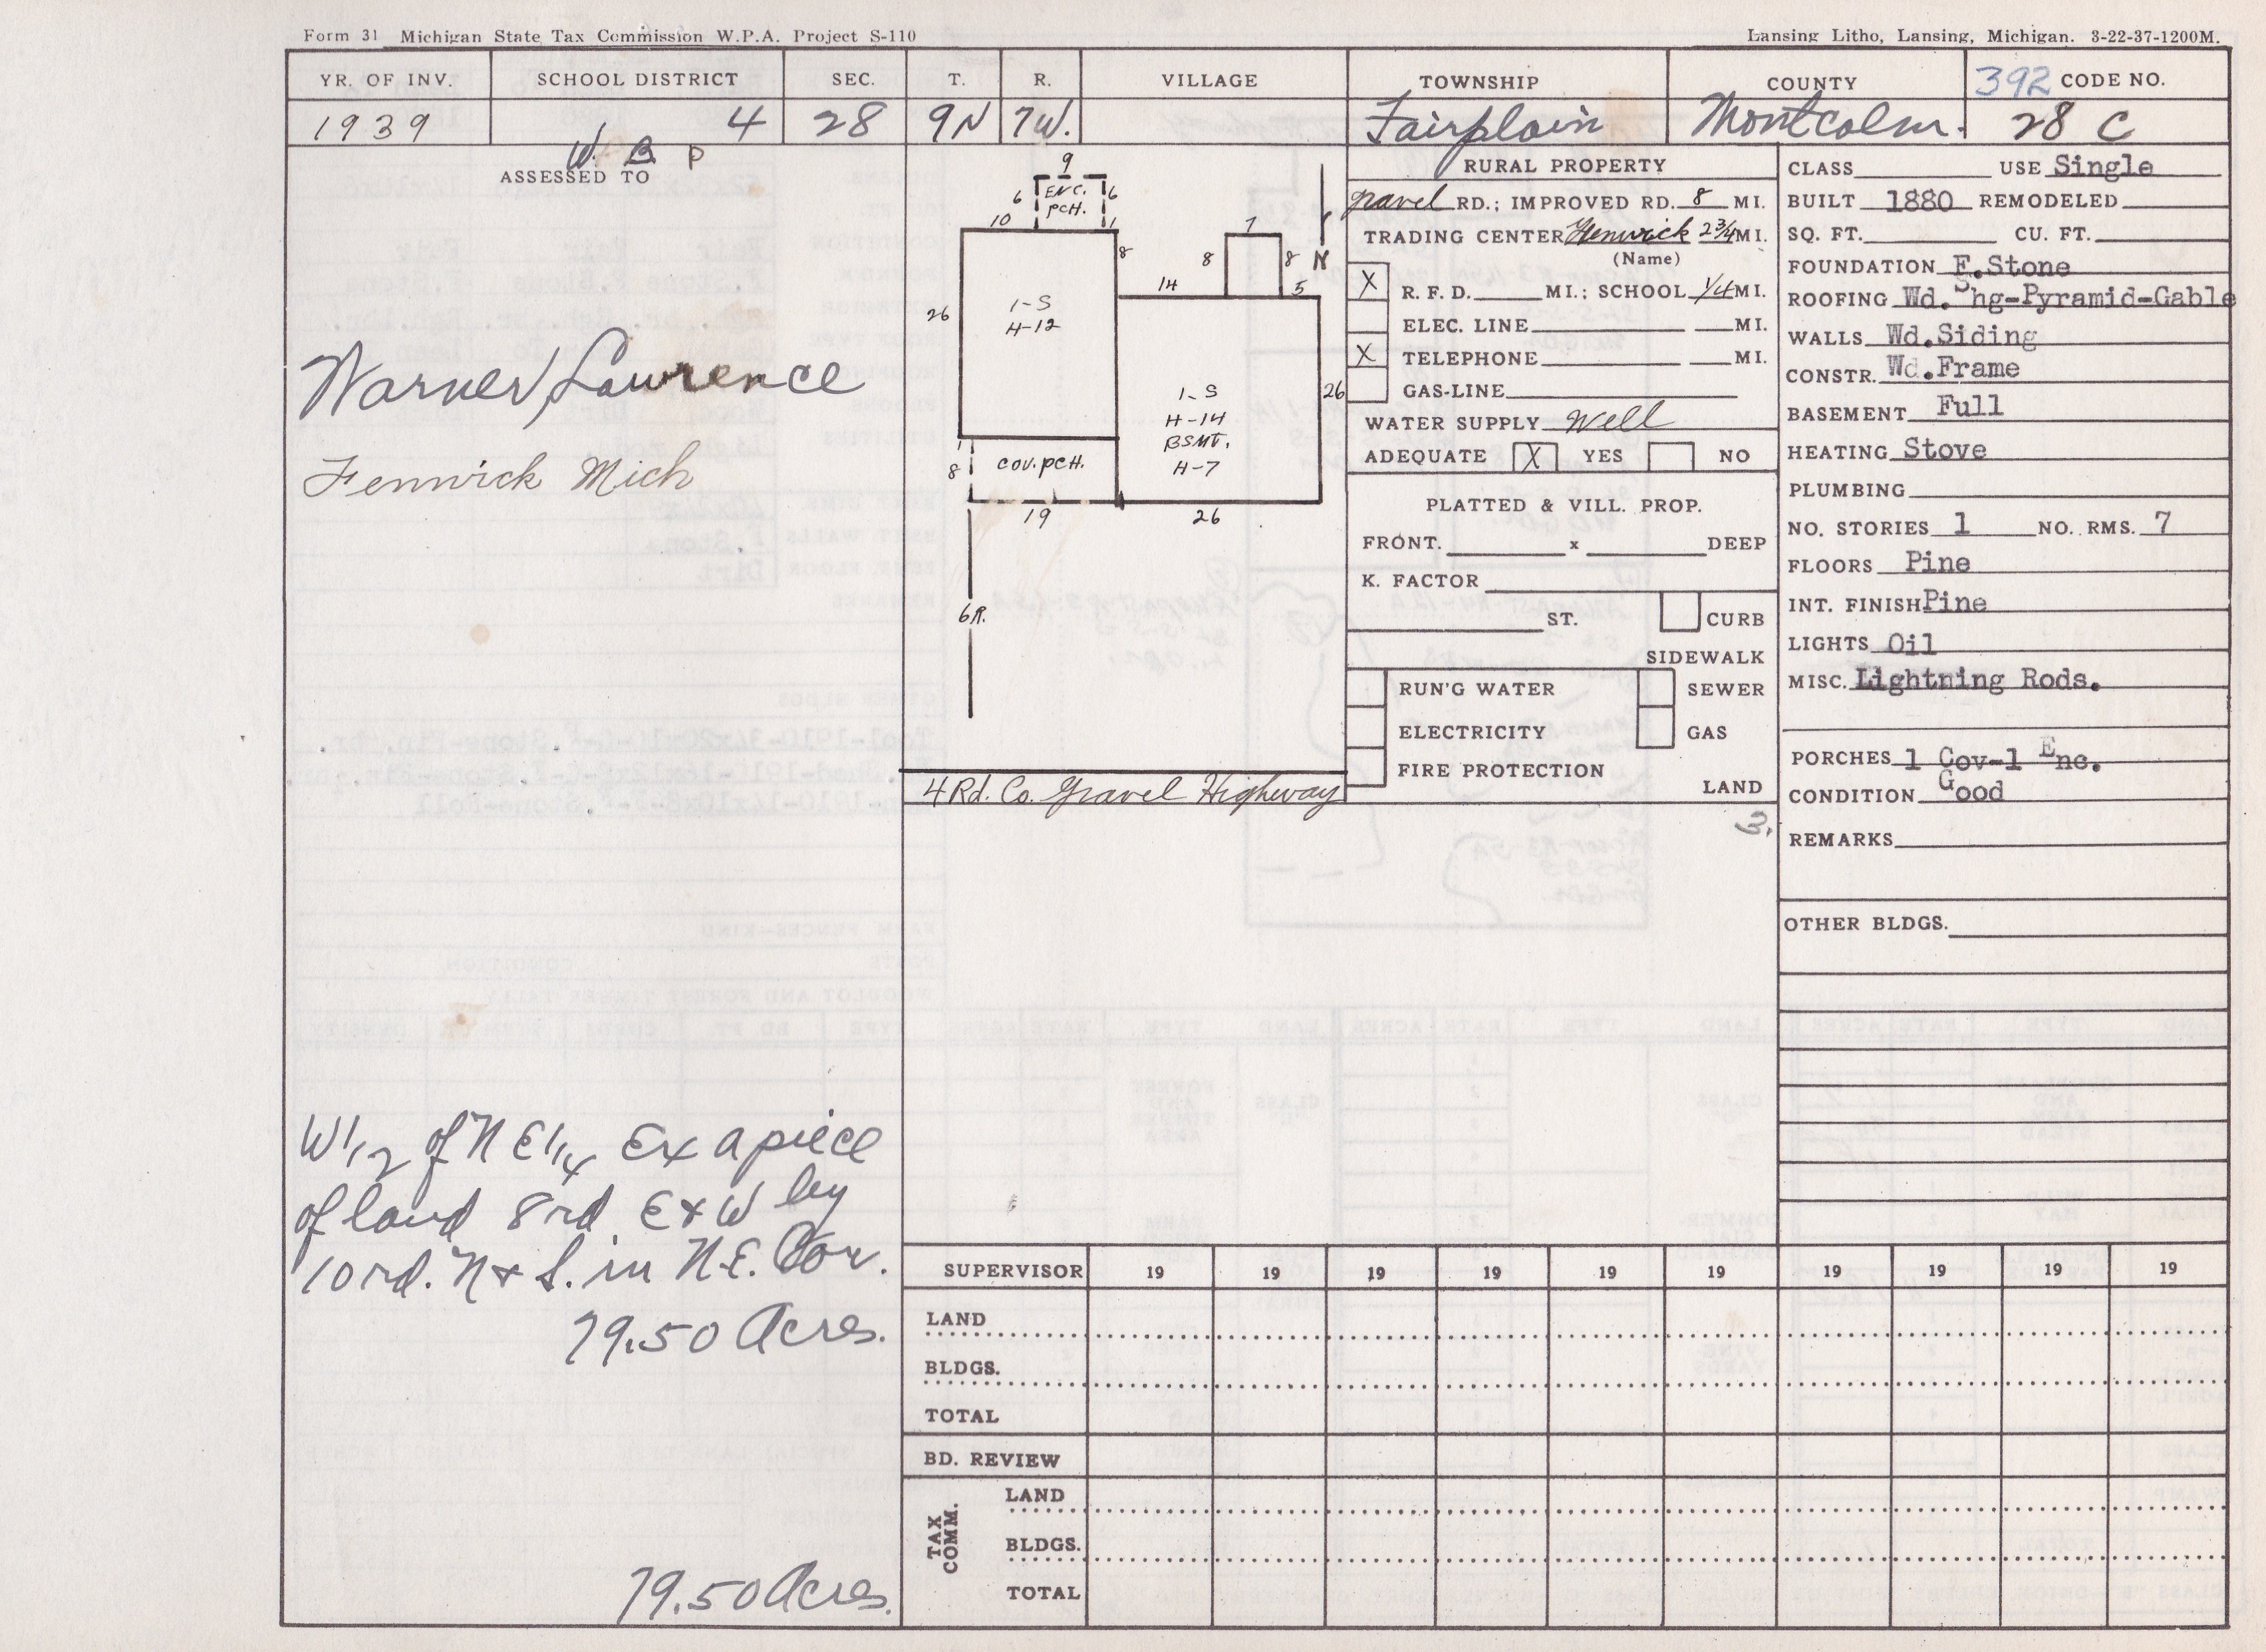 Form 31 Michigan State Tax Commission W.P.A. Project S-110
Lansing Litho, Lansing, Michigan. 3-22-37-1200M.
YR. OF INV. SCHOOL DISTRICT SEC. T. R. VILLAGE TOWNSHIP COUNTY 392 CODE NO.
1939 4 28 9N 7W. Fairplain Montcalm. 28 C
W. B P
ASSESSED TO
Warner, Lawrence
Fenwick Mich
W 1/2 of N E 1/4 Ex a piece
of land 8 rd E & W by
10 rd. N & S. in N.E. Cor.
79.50 Acres.
79.50 Acres.
9
6 ENC. 6
PCH.
10 1
7
8 8 8 N
14 5
1-S
H-12
26
1-S
H-14
BSMT.
H-7
26
8 COV. PCH.
19 26
6R.
4 Rd. Co. Gravel Highway
RURAL PROPERTY
gravel RD.; IMPROVED RD. 8 MI.
TRADING CENTER Fenwick 2 3/4 MI.
(Name)
X R. F. D. MI.; SCHOOL 1/4 MI.
ELEC. LINE MI.
X TELEPHONE MI.
GAS-LINE
WATER SUPPLY Well
ADEQUATE X YES NO
PLATTED & VILL. PROP.
FRONT. x DEEP
K. FACTOR
ST. CURB
SIDEWALK
RUN'G WATER SEWER
ELECTRICITY GAS
FIRE PROTECTION
LAND
3.
CLASS USE Single
BUILT 1880 REMODELED
SQ. FT. CU. FT.
FOUNDATION F.Stone
ROOFING Wd.Shg-Pyramid-Gable
WALLS Wd.Siding
CONSTR. Wd.Frame
BASEMENT Full
HEATING Stove
PLUMBING
NO. STORIES 1 NO. RMS. 7
FLOORS Pine
INT. FINISH Pine
LIGHTS Oil
MISC. Lightning Rods.
PORCHES 1 Cov-1 Enc.
CONDITION Good
REMARKS
OTHER BLDGS.
SUPERVISOR 19 19 19 19 19 19 19 19 19 19
LAND
BLDGS.
TOTAL
BD. REVIEW
TAX COMM.
LAND
BLDGS.
TOTAL